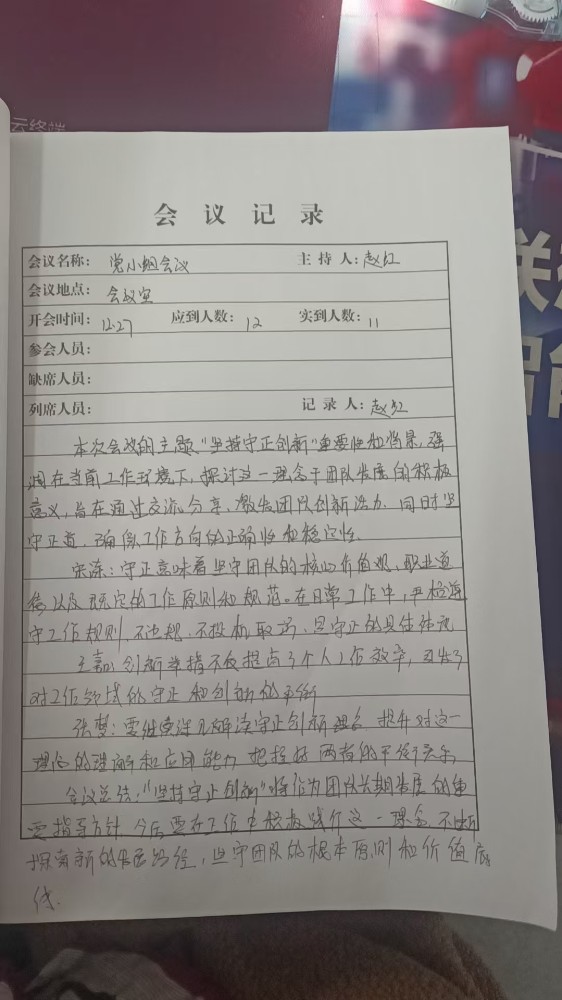 云终端
联想
智能
会 议 记 录
会议名称： 党小组会议 主 持 人：赵红
会议地点： 会议室
开会时间：12.27 应到人数：12 实到人数：11
参会人员：
缺席人员：
列席人员： 记 录 人：赵红
本次会议的主题“坚持守正创新”重要性和背景，强
调在当前工作环境下，探讨这一理念于团队发展的积极
意义，旨在通过交流、分享，激发团队创新活力，同时坚
守正道，确保工作方向的正确性和稳定性
宋涛：守正意味着坚守团队的核心价值观，职业道
德以及既定的工作原则和规范。在日常工作中，严格遵
守工作规则，不违规、不投机取巧，是守正的具体体现
王嘉：创新举措不仅提高了个人工作效率，
对工作领域的守正和创新的平衡
张梦：要继续深入研读守正创新理念，提升对这一
理念的理解和应用能力，把握好两者的平衡关系
会议总结：“坚持守正创新”将作为团队长期发展的重
要指导方针，今后要在工作中积极践行这一理念，不断
探索新的发展路径，坚守团队的根本原则和价值底
线.